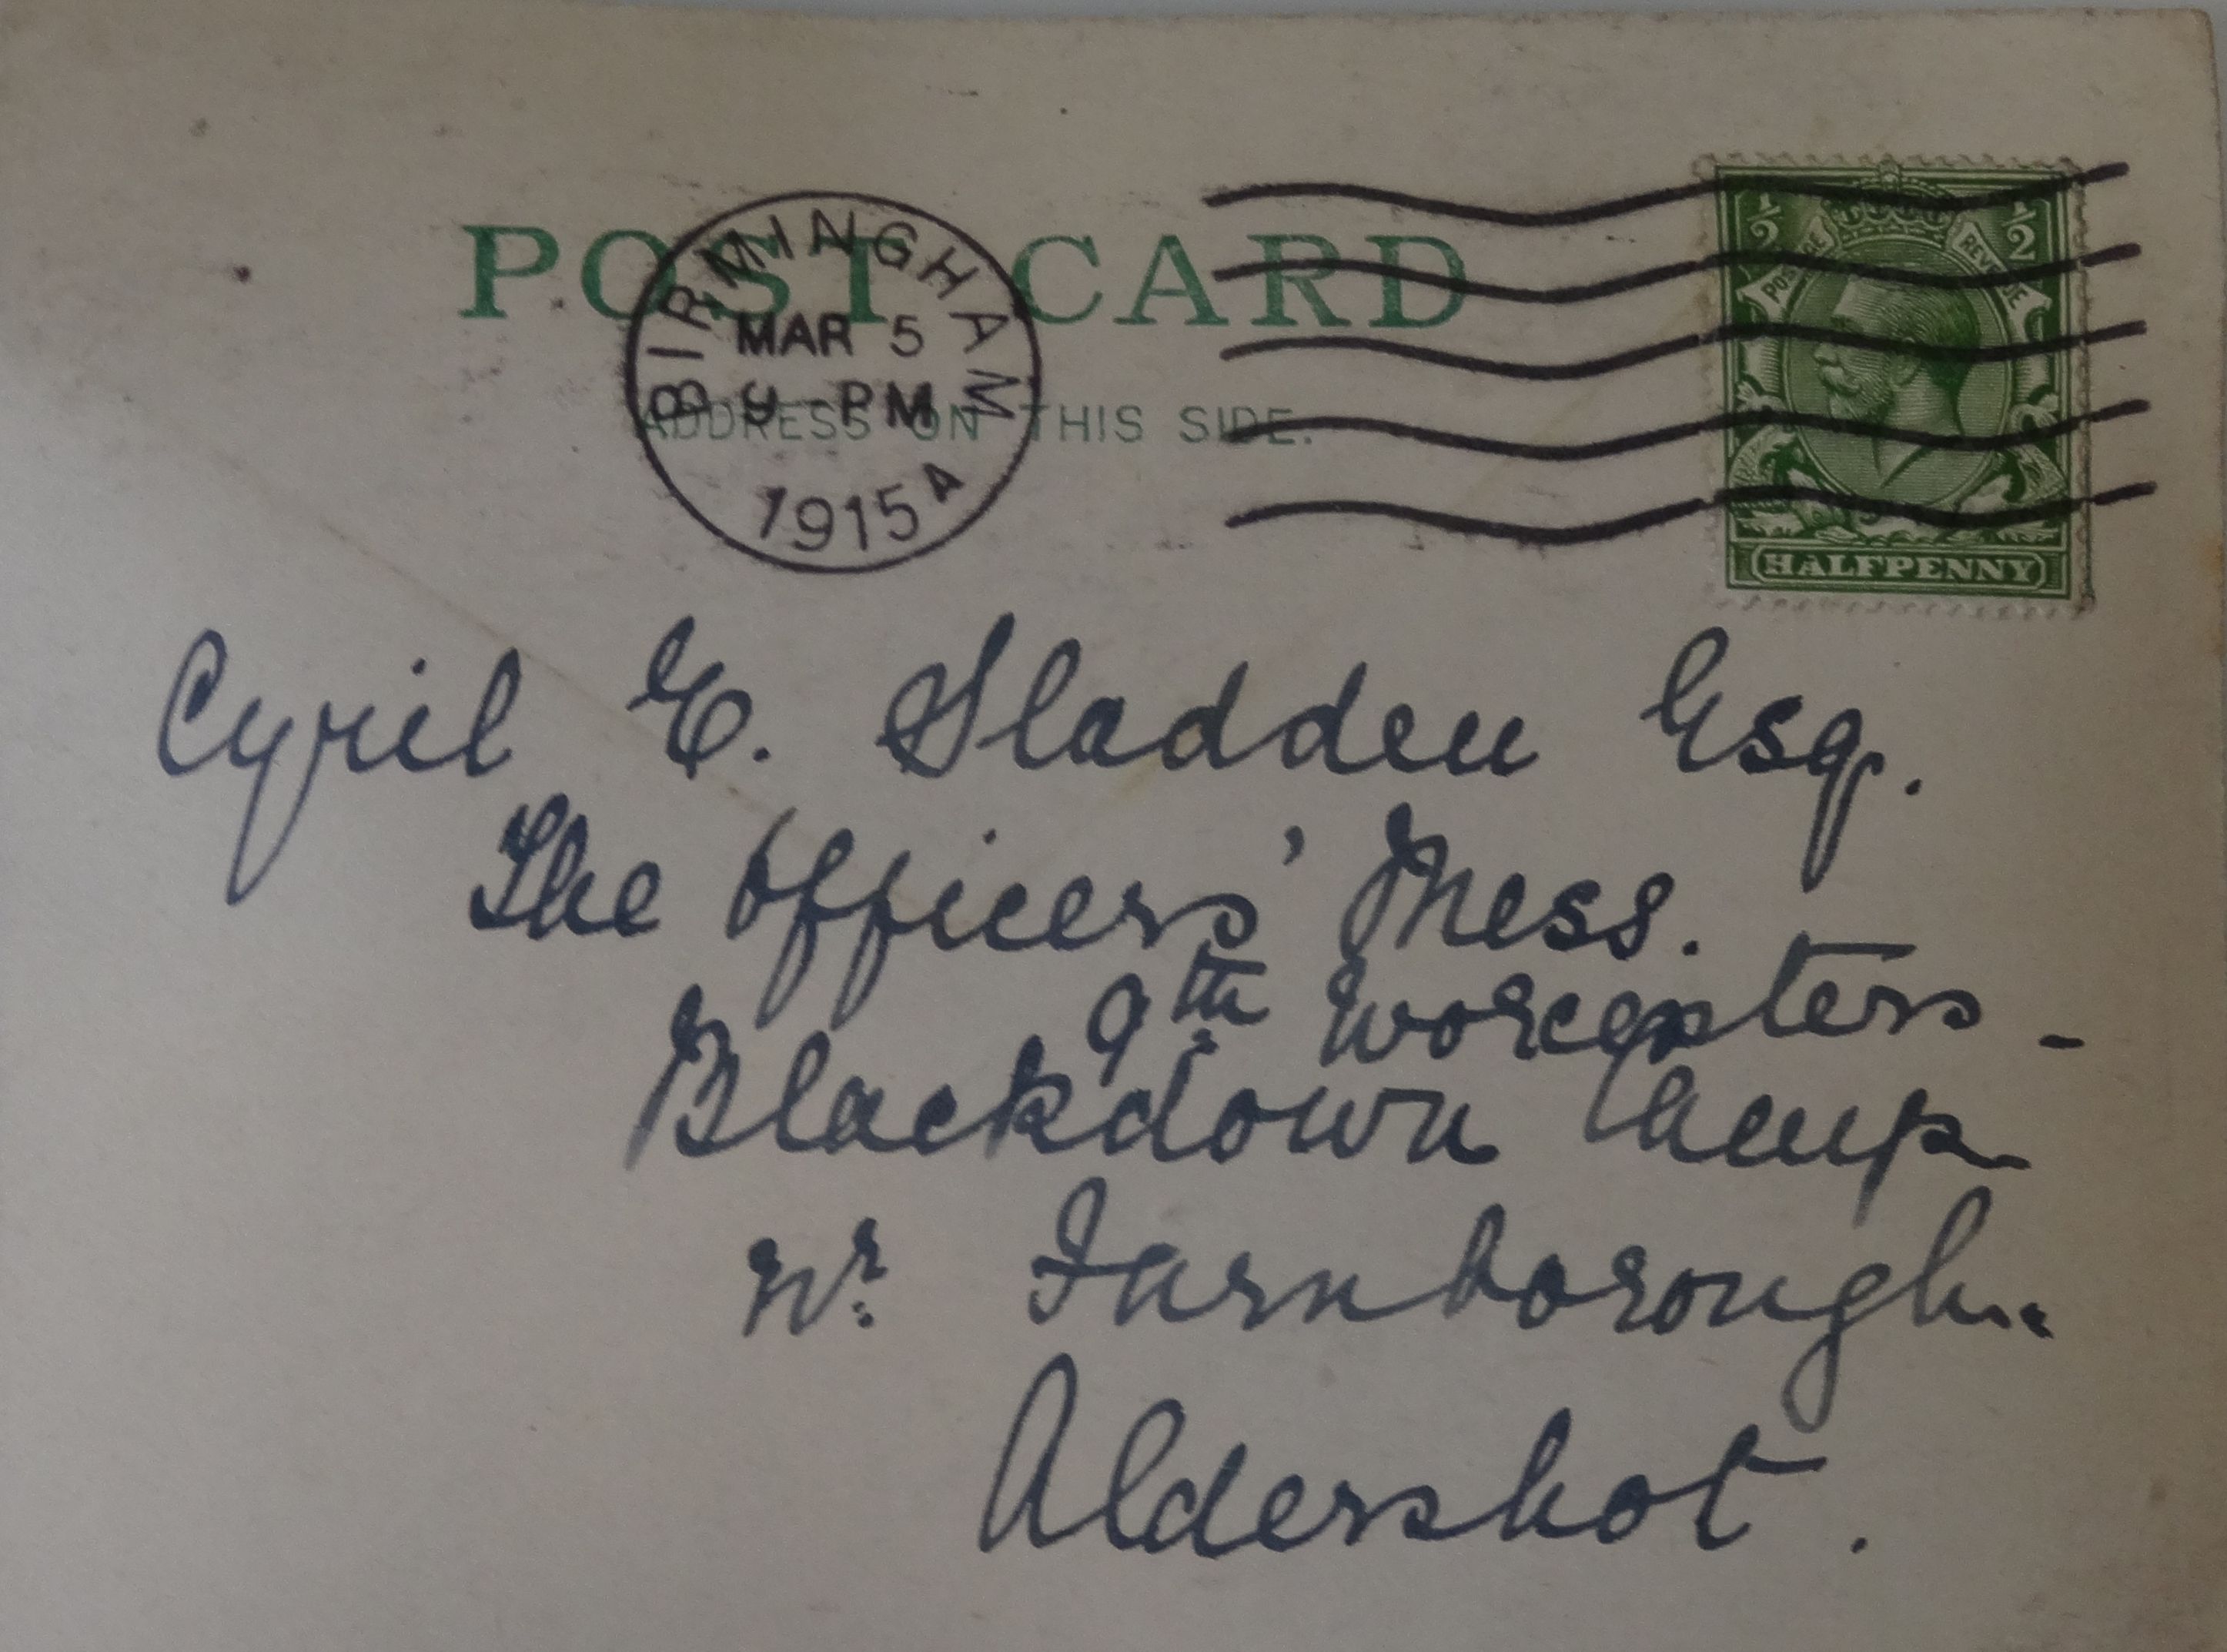 POST CARD
ADDRESS ON THIS SIDE.
BIRMINGHAM
MAR 5
9 - PM
1915 A
½ ½
POSTAGE REVENUE
HALFPENNY
Cyril E. Sladden Esq.
The Officers' Mess.
9th Worcesters -
Blackdown Camp
Nr. Farnborough.
Aldershot.